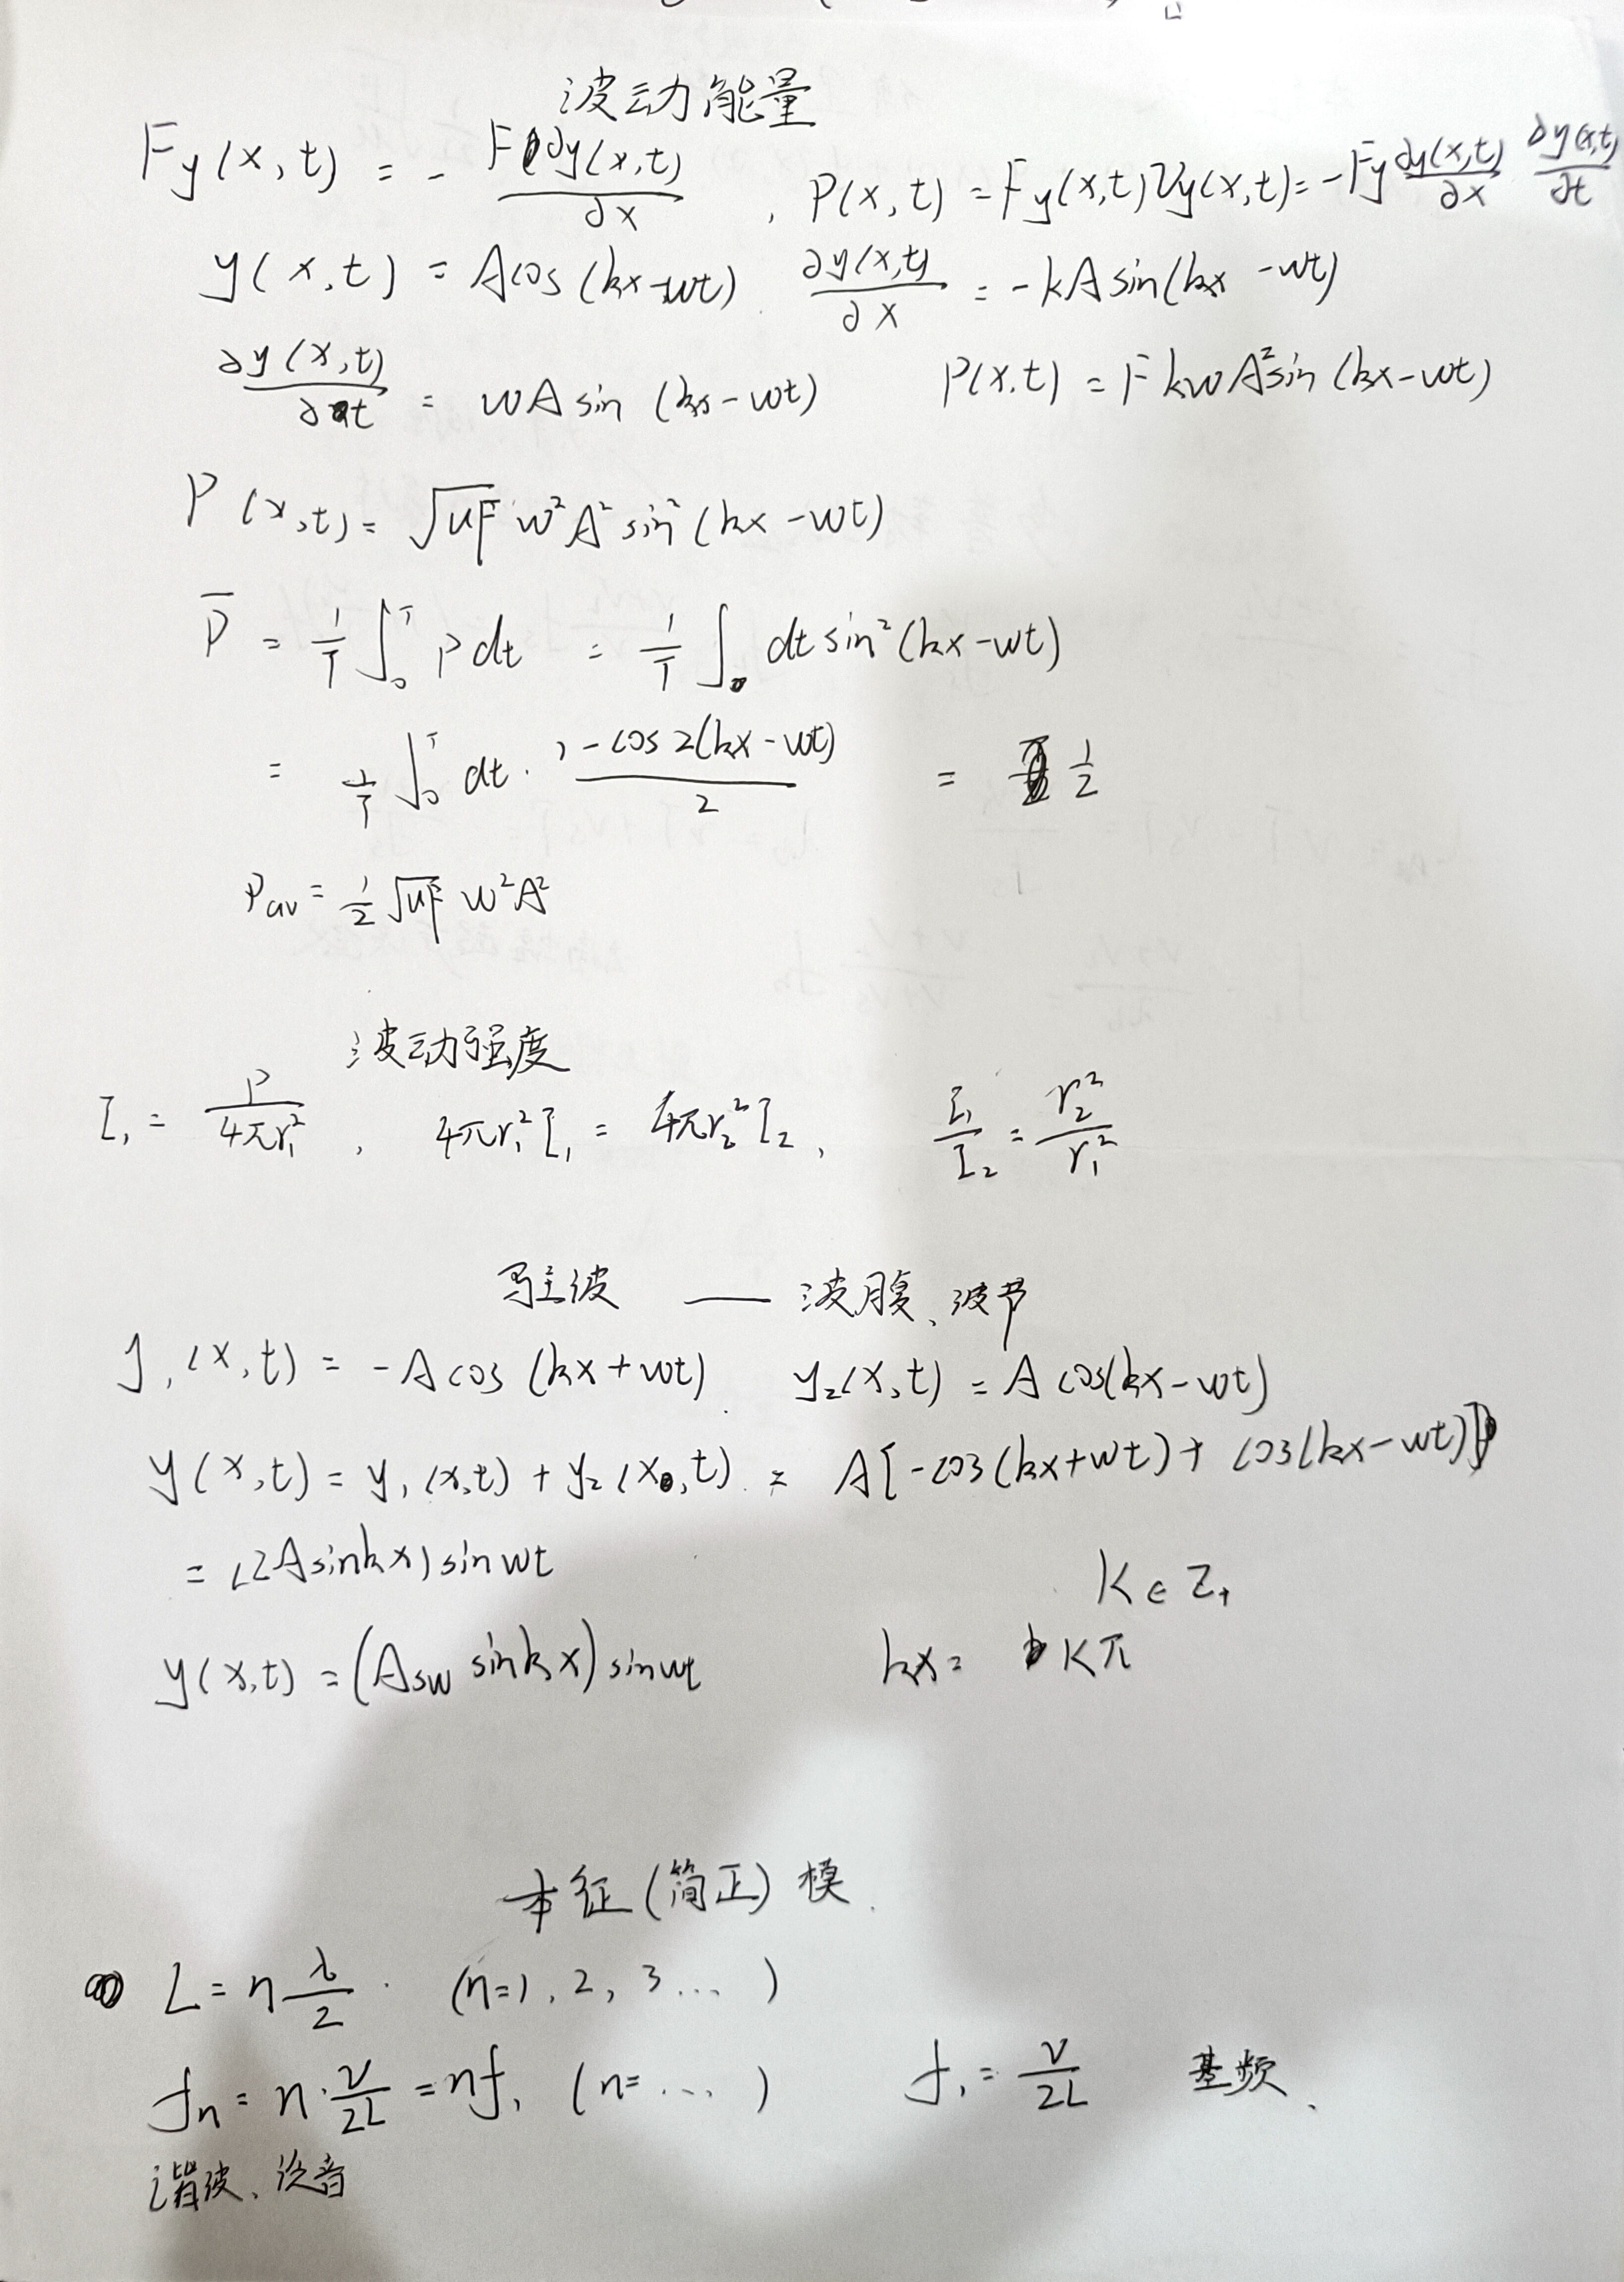 波动能量
Fy(x,t) = - F∂y(x,t)/∂x , P(x,t) = Fy(x,t)Vy(x,t) = -Fy ∂y(x,t)/∂x ∂y(x,t)/∂t
y(x,t) = Acos(kx-wt) ∂y(x,t)/∂x = -kAsin(kx-wt)
∂y(x,t)/∂t = wAsin(kx-wt) P(x,t) = FkwA²sin(kx-wt)
P(x,t) = √(uF) w²A²sin²(kx-wt)
P̄ = 1/T ∫₀ᵀ pdt = 1/T ∫₀ dt sin²(kx-wt)
= 1/T ∫₀ᵀ dt · (1-cos2(kx-wt))/2 = 1/2
Pav = 1/2 √(uF) w²A²
波动强度
I₁ = P/4πr₁² , 4πr₁²I₁ = 4πr₂²I₂ , I₁/I₂ = r₂²/r₁²
驻波 — 波腹、波节
y₁(x,t) = -Acos(kx+wt) y₂(x,t) = Acos(kx-wt)
y(x,t) = y₁(x,t) + y₂(x,t) = A[-cos(kx+wt) + cos(kx-wt)]
= (2Asinkx)sinwt K∈Z₊
y(x,t) = (Asw sinkx)sinwt kx = Kπ
本征(简正)模
L = n λ/2 · (n=1, 2, 3...)
fn = n·v/2L = nf₁ (n=...) f₁ = v/2L 基频、
谐波、泛音